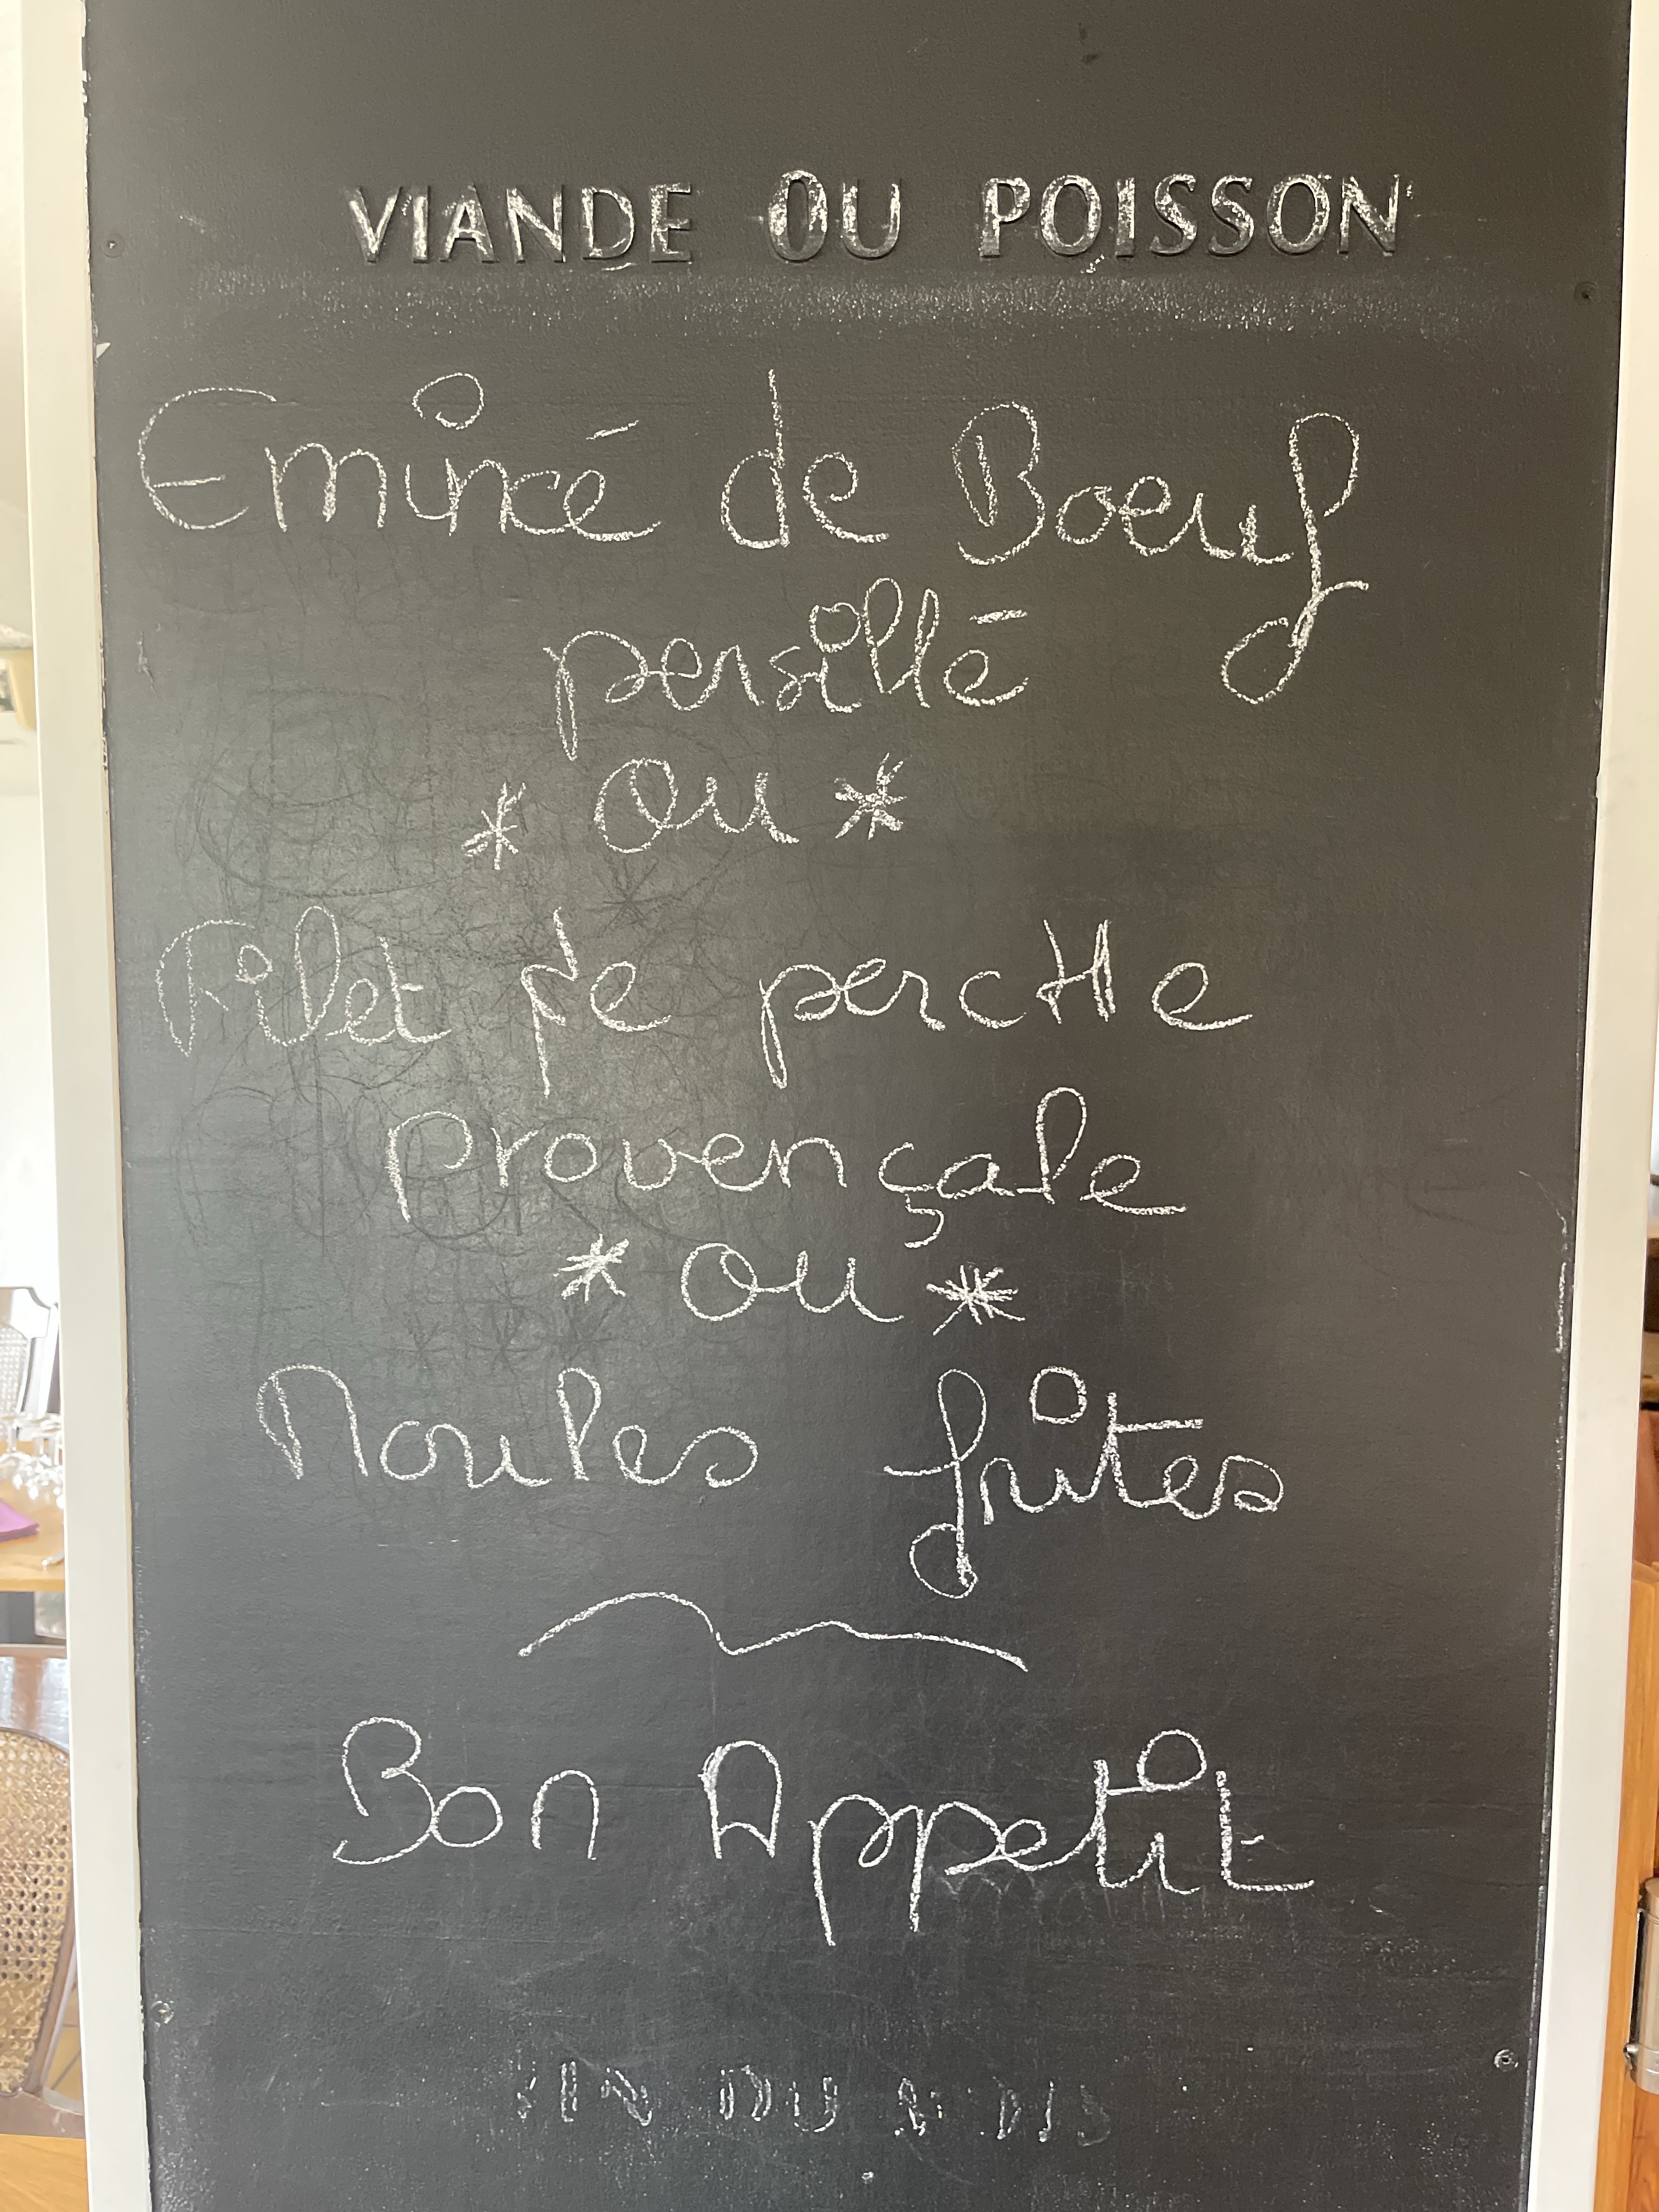 VIANDE OU POISSON
Emincé de Boeuf
persillé
* ou *
Filet de percHe
provençale
* ou *
Moules frites
Bon Appetit
VIN DU MOIS